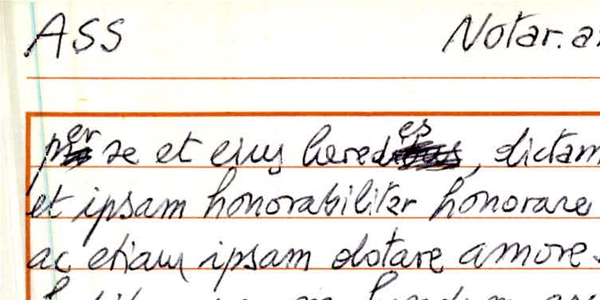 ASS Notar.
per se et eius heredes, dictam
et ipsam honorabiliter honorare
ac etiam ipsam dotare amore